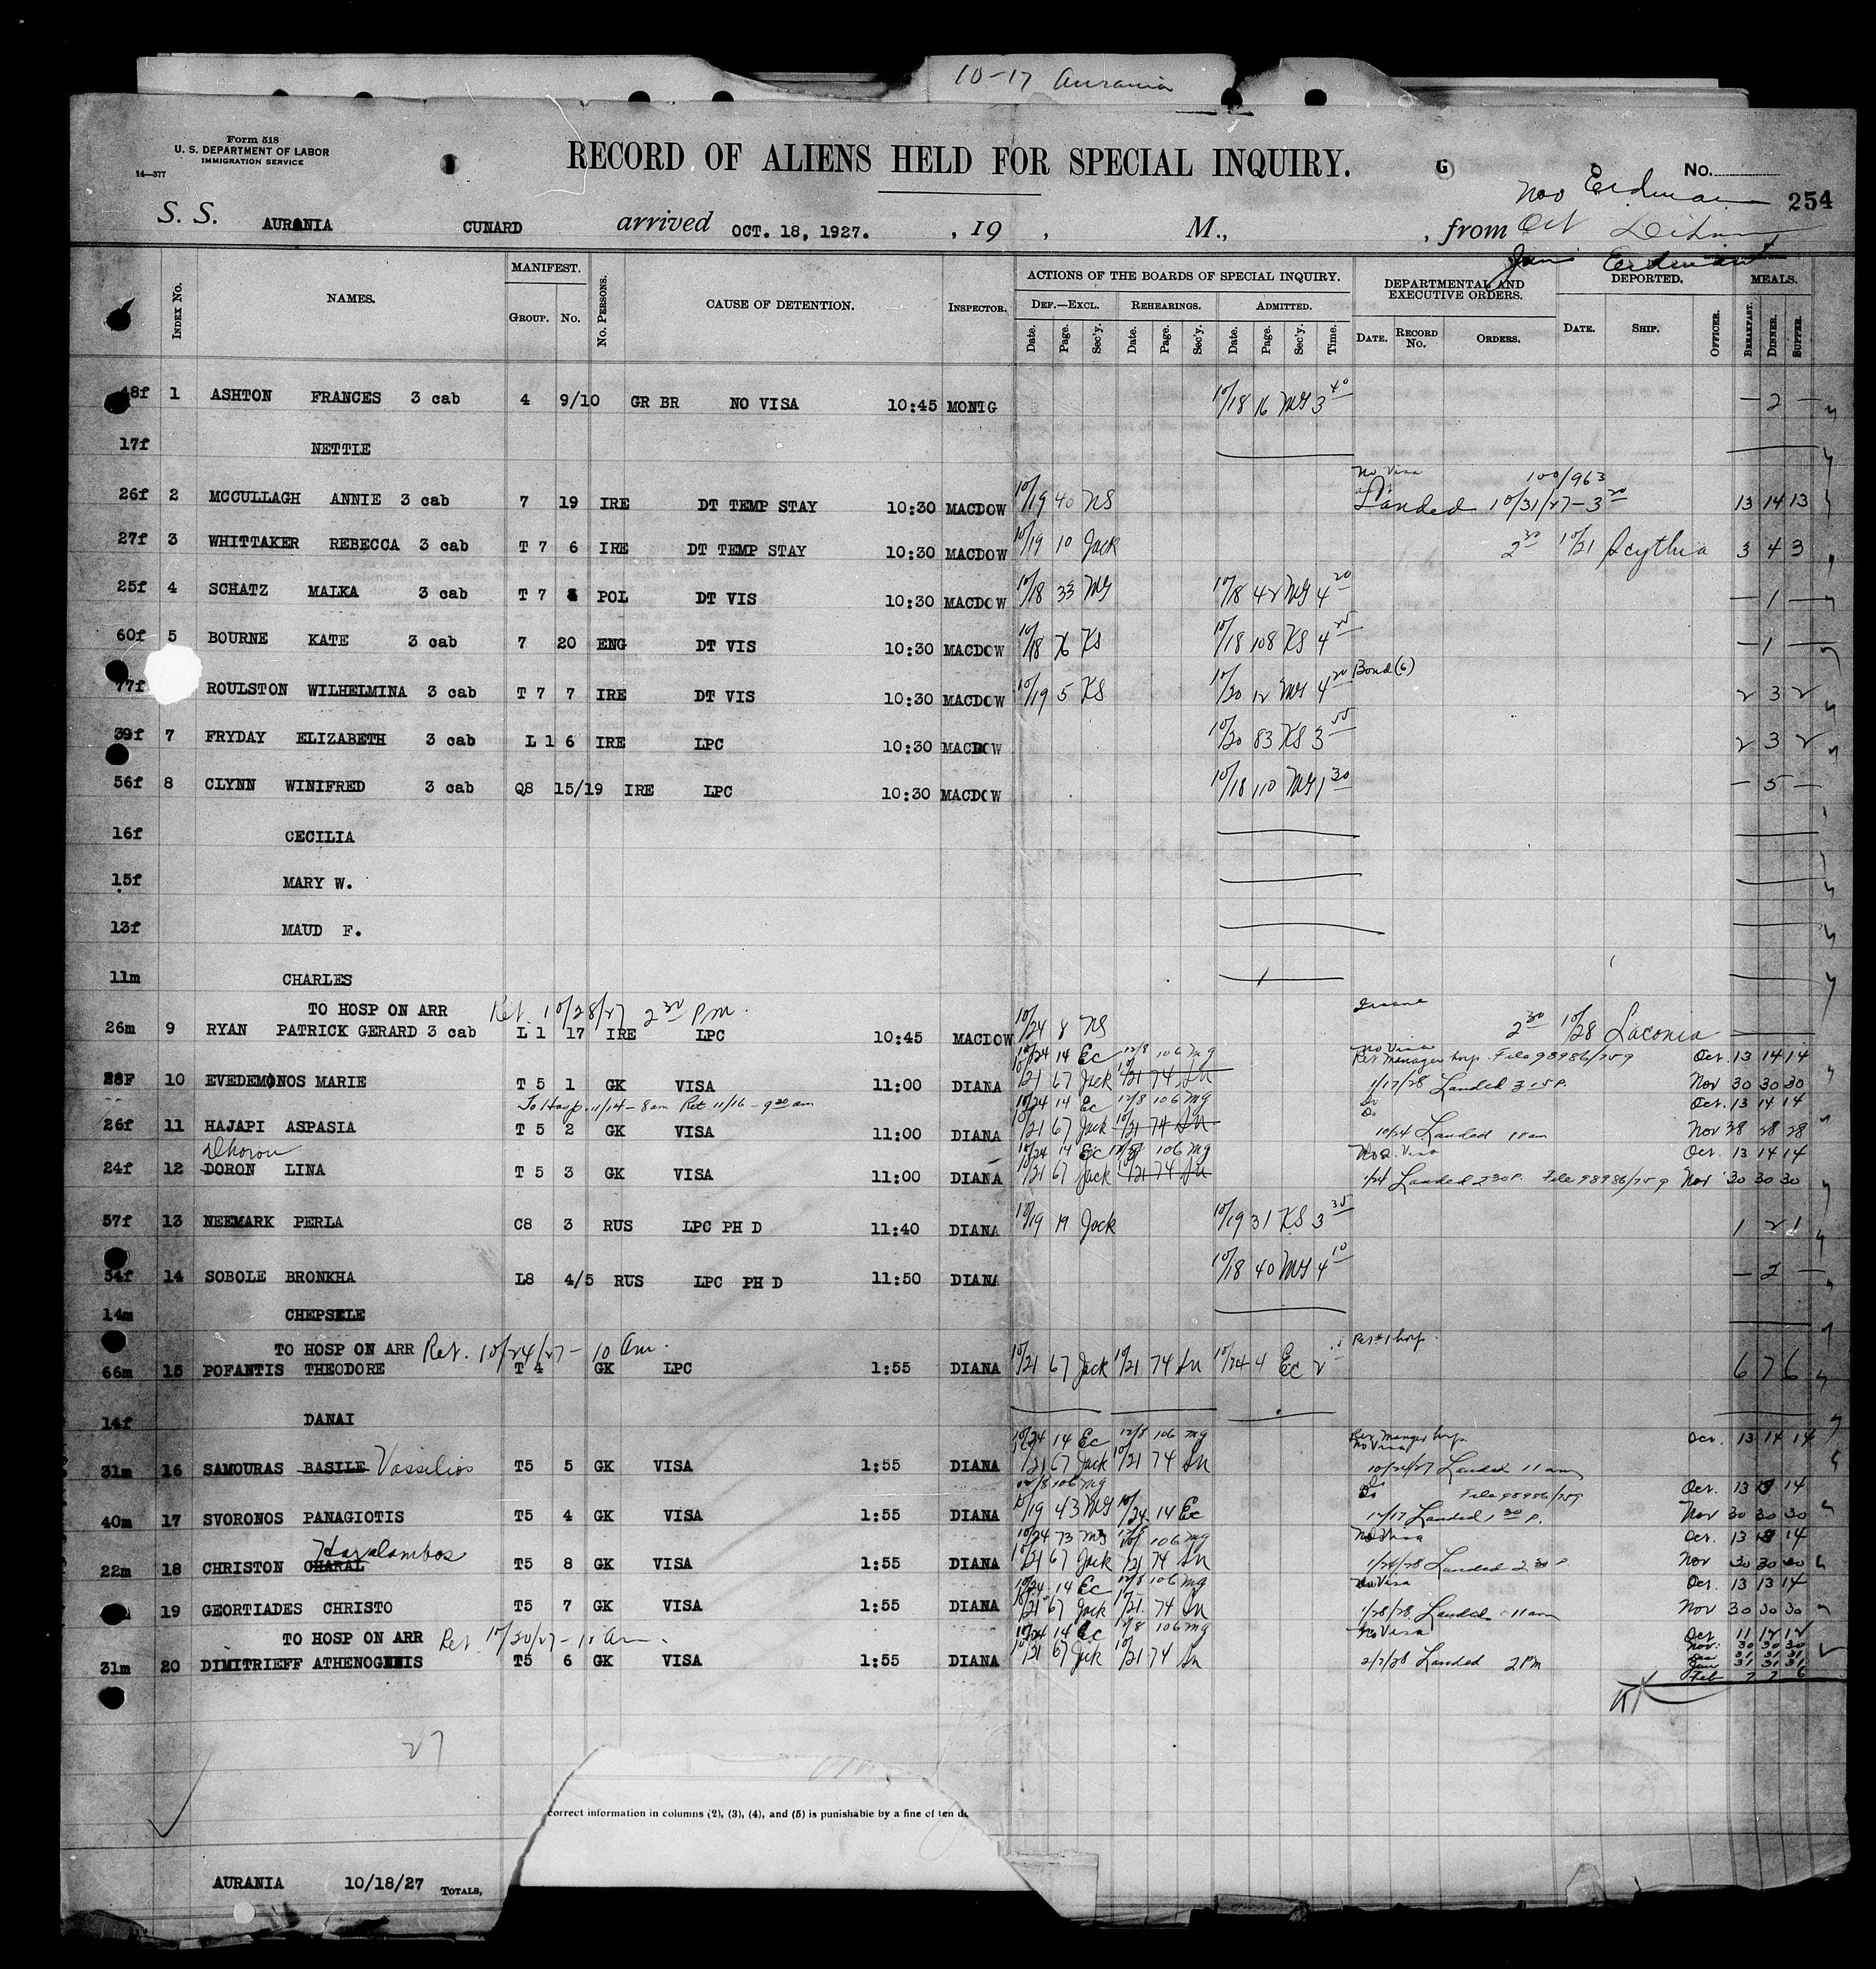 10-17 Aurania
Form 518
U. S. DEPARTMENT OF LABOR
IMMIGRATION SERVICE
14—377
RECORD OF ALIENS HELD FOR SPECIAL INQUIRY.
G
No.
254
Nov Erdman
S. S. AURANIA CUNARD arrived OCT. 18, 1927. , 19 , M., , from Oct
Jan Erdman
INDEX No. NAMES. MANIFEST. GROUP. No. No. PERSONS. CAUSE OF DETENTION. INSPECTOR. ACTIONS OF THE BOARDS OF SPECIAL INQUIRY. DEPARTMENTAL AND EXECUTIVE ORDERS. DEPORTED. MEALS.
DEF.—EXCL. REHEARINGS. ADMITTED.
Date. Page. Sec'y. Date. Page. Sec'y. Date. Page. Sec'y. Time. DATE. RECORD No. ORDERS. DATE. SHIP. OFFICER. BREAKFAST. DINNER. SUPPER.
48f 1 ASHTON FRANCES 3 cab 4 9/10 GR BR NO VISA 10:45 MONIG 10/18 16 MG 3 40 — 2 —
17f NETTIE
No Visa 100/963
26f 2 MCCULLAGH ANNIE 3 cab 7 19 IRE DT TEMP STAY 10:30 MACDOW 10/19 40 NS Landed 10/31/27 - 3 20 13 14 13
27f 3 WHITTAKER REBECCA 3 cab T 7 6 IRE DT TEMP STAY 10:30 MACDOW 10/19 10 Jack 2 30 10/21 Scythia 3 4 3
25f 4 SCHATZ MALKA 3 cab T 7 POL DT VIS 10:30 MACDOW 10/18 33 MG 10/18 42 MG 4 20 — 1 —
60f 5 BOURNE KATE 3 cab 7 20 ENG DT VIS 10:30 MACDOW 10/18 76 KS 10/18 108 KS 4 25 — 1 —
77f ROULSTON WILHELMINA 3 cab T 7 7 IRE DT VIS 10:30 MACDOW 10/19 5 KS 10/20 12 MG 4 20 Bond (6) 2 3 2
39f 7 FRYDAY ELIZABETH 3 cab L 1 6 IRE LPC 10:30 MACDOW 10/20 83 KS 3 55 2 3 2
56f 8 CLYNN WINIFRED 3 cab Q8 15/19 IRE LPC 10:30 MACDOW 10/18 110 MG 1 30 — 5 —
16f CECILIA
15f MARY W.
13f MAUD F.
11m CHARLES
TO HOSP ON ARR Ret. 10/28/27 2 30 Pm.
26m 9 RYAN PATRICK GERARD 3 cab L 1 17 IRE LPC 10:45 MACDOW 10/24 8 NS Insane 2 30 10/28 Laconia
10/24 14 Ec 12/8 106 mg No Visa Per Manager hosp. File 98986/759 Oct. 13 14 14
28F 10 EVEDEMONOS MARIE T 5 1 GK VISA 11:00 DIANA 10/21 67 Jack 10/21 74 Sn 1/17/28 Landed 3:15 P. Nov 30 30 30
To Hosp. 11/14 - 8 am Ret 11/16 - 9 20 am 10/24 14 Ec 12/8 106 mg Do Oct. 13 14 14
26f 11 HAJAPI ASPASIA T 5 2 GK VISA 11:00 DIANA 10/21 67 Jack 10/21 74 Sn 10/24 Landed 11 am Nov 28 28 28
Dhorou 10/24 14 Ec 12/8 106 mg No Visa Oct. 13 14 14
24f 12 DORON LINA T 5 3 GK VISA 11:00 DIANA 10/21 67 Jack 10/21 74 Sn 1/24 Landed 2 30 P. File 98986/759 Nov 30 30 30
57f 13 NEEMARK PERLA C8 3 RUS LPC PH D 11:40 DIANA 10/19 19 Jack 10/19 31 KS 3 35 1 2 1
54f 14 SOBOLE BRONKHA L8 4/5 RUS LPC PH D 11:50 DIANA 10/18 40 MG 4 10 — 2 —
14m CHEPSELE
TO HOSP ON ARR Ret. 10/24/27 - 10 am. Per #1 hosp.
66m 15 POFANTIS THEODORE T 4 GK LPC 1:55 DIANA 10/21 67 Jack 10/21 74 Sn 10/24 4 Ec 2 6 7 6
14f DANAI
10/24 14 Ec 12/8 106 mg Per Manager hosp. No Visa Oct. 13 14 14
31m 16 SAMOURAS BASILE Vassilios T5 5 GK VISA 1:55 DIANA 10/21 67 Jack 10/21 74 Sn 10/24/27 Landed 11 am
12/8 106 mg Do File 98986/759 Oct. 13 13 14
40m 17 SVORONOS PANAGIOTIS T5 4 GK VISA 1:55 DIANA 10/19 43 MG 10/24 14 Ec 12/17 Landed 1 30 P. Nov 30 30 30
Haralambos 10/24 73 mg 12/8 106 mg No Visa Oct. 13 13 14
22m 18 CHRISTON CHARAL T5 8 GK VISA 1:55 DIANA 10/21 67 Jack 10/21 74 Sn 1/24/28 Landed 2 30 P Nov 30 30 30
10/24 14 Ec 12/8 106 mg No Visa Oct. 13 13 14
19 GEORTIADES CHRISTO T5 7 GK VISA 1:55 DIANA 10/21 67 Jack 10/21 74 Sn 1/28/28 Landed 11 am Nov 30 30 30
TO HOSP ON ARR Ret 10/20/27 - 11 am. 10/24 14 Ec 12/8 106 mg No Visa Oct 11 12 12
Nov. 30 30 30
31m 20 DIMITRIEFF ATHENOGENIS T5 6 GK VISA 1:55 DIANA 10/21 67 Jack 10/21 74 Sn 2/7/28 Landed 2 Pm Dec 31 31 31
Jan 31 31 31
Feb 7 7 6
27
correct information in columns (2), (3), (4), and (5) is punishable by a fine of ten do
AURANIA 10/18/27 TOTALS,